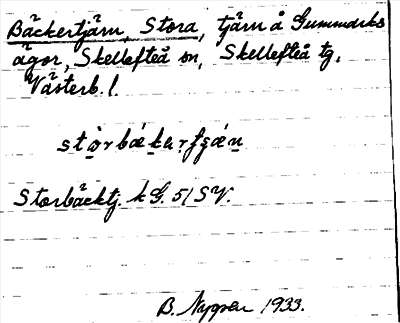 Bäckertjärn, Stora, tjärn å Gummarks
ägor, Skellefteå sn, Skellefteå tg,
Västerb. l.
Storbäcktj. kG. 51 SV.
B. Nygren 1933.